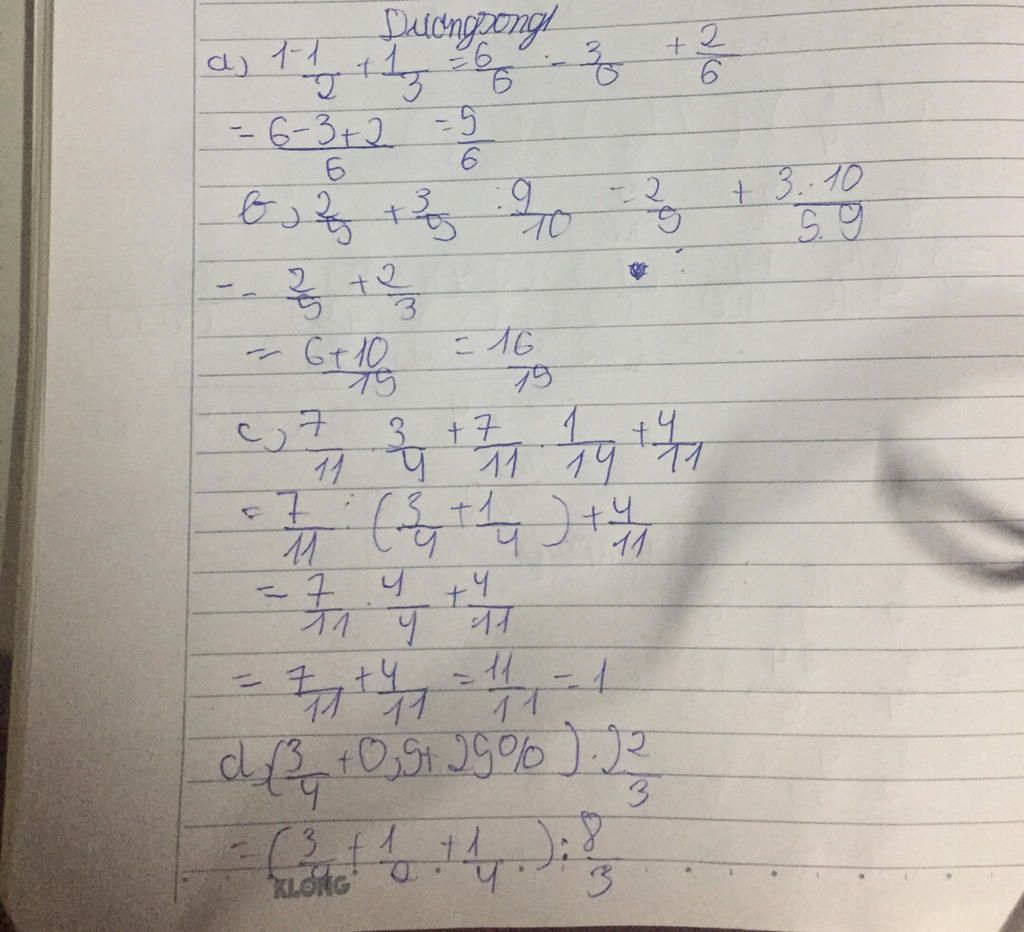 a, 1-1/2 + 1/3 = 6/6 - 3/6 + 2/6
= (6-3+2)/6 = 5/6
b, 2/5 + 3/5 : 9/10 = 2/5 + (3.10)/(5.9)
= 2/5 + 2/3
= (6+10)/15 = 16/15
c, 7/11 . 3/4 + 7/11 . 1/14 + 4/11
= 7/11 : (3/4 + 1/4) + 4/11
= 7/11 . 4/4 + 4/11
= 7/11 + 4/11 = 11/11 = 1
d, (3/4 + 0,5 + 25%) . 2 2/3
= (3/4 + 1/2 + 1/4) : 8/3
KLONG